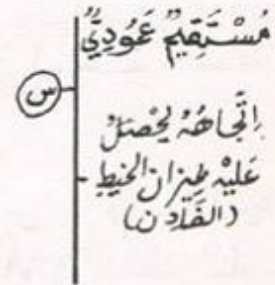 مُسْتَقِيمٌ عَمُودِيٌّ
س
اِتِّجَاهُهُ يُحْصَلُ
عَلَيْهِ بِمِيزَانِ الخَيْطِ
(الفَادِن)